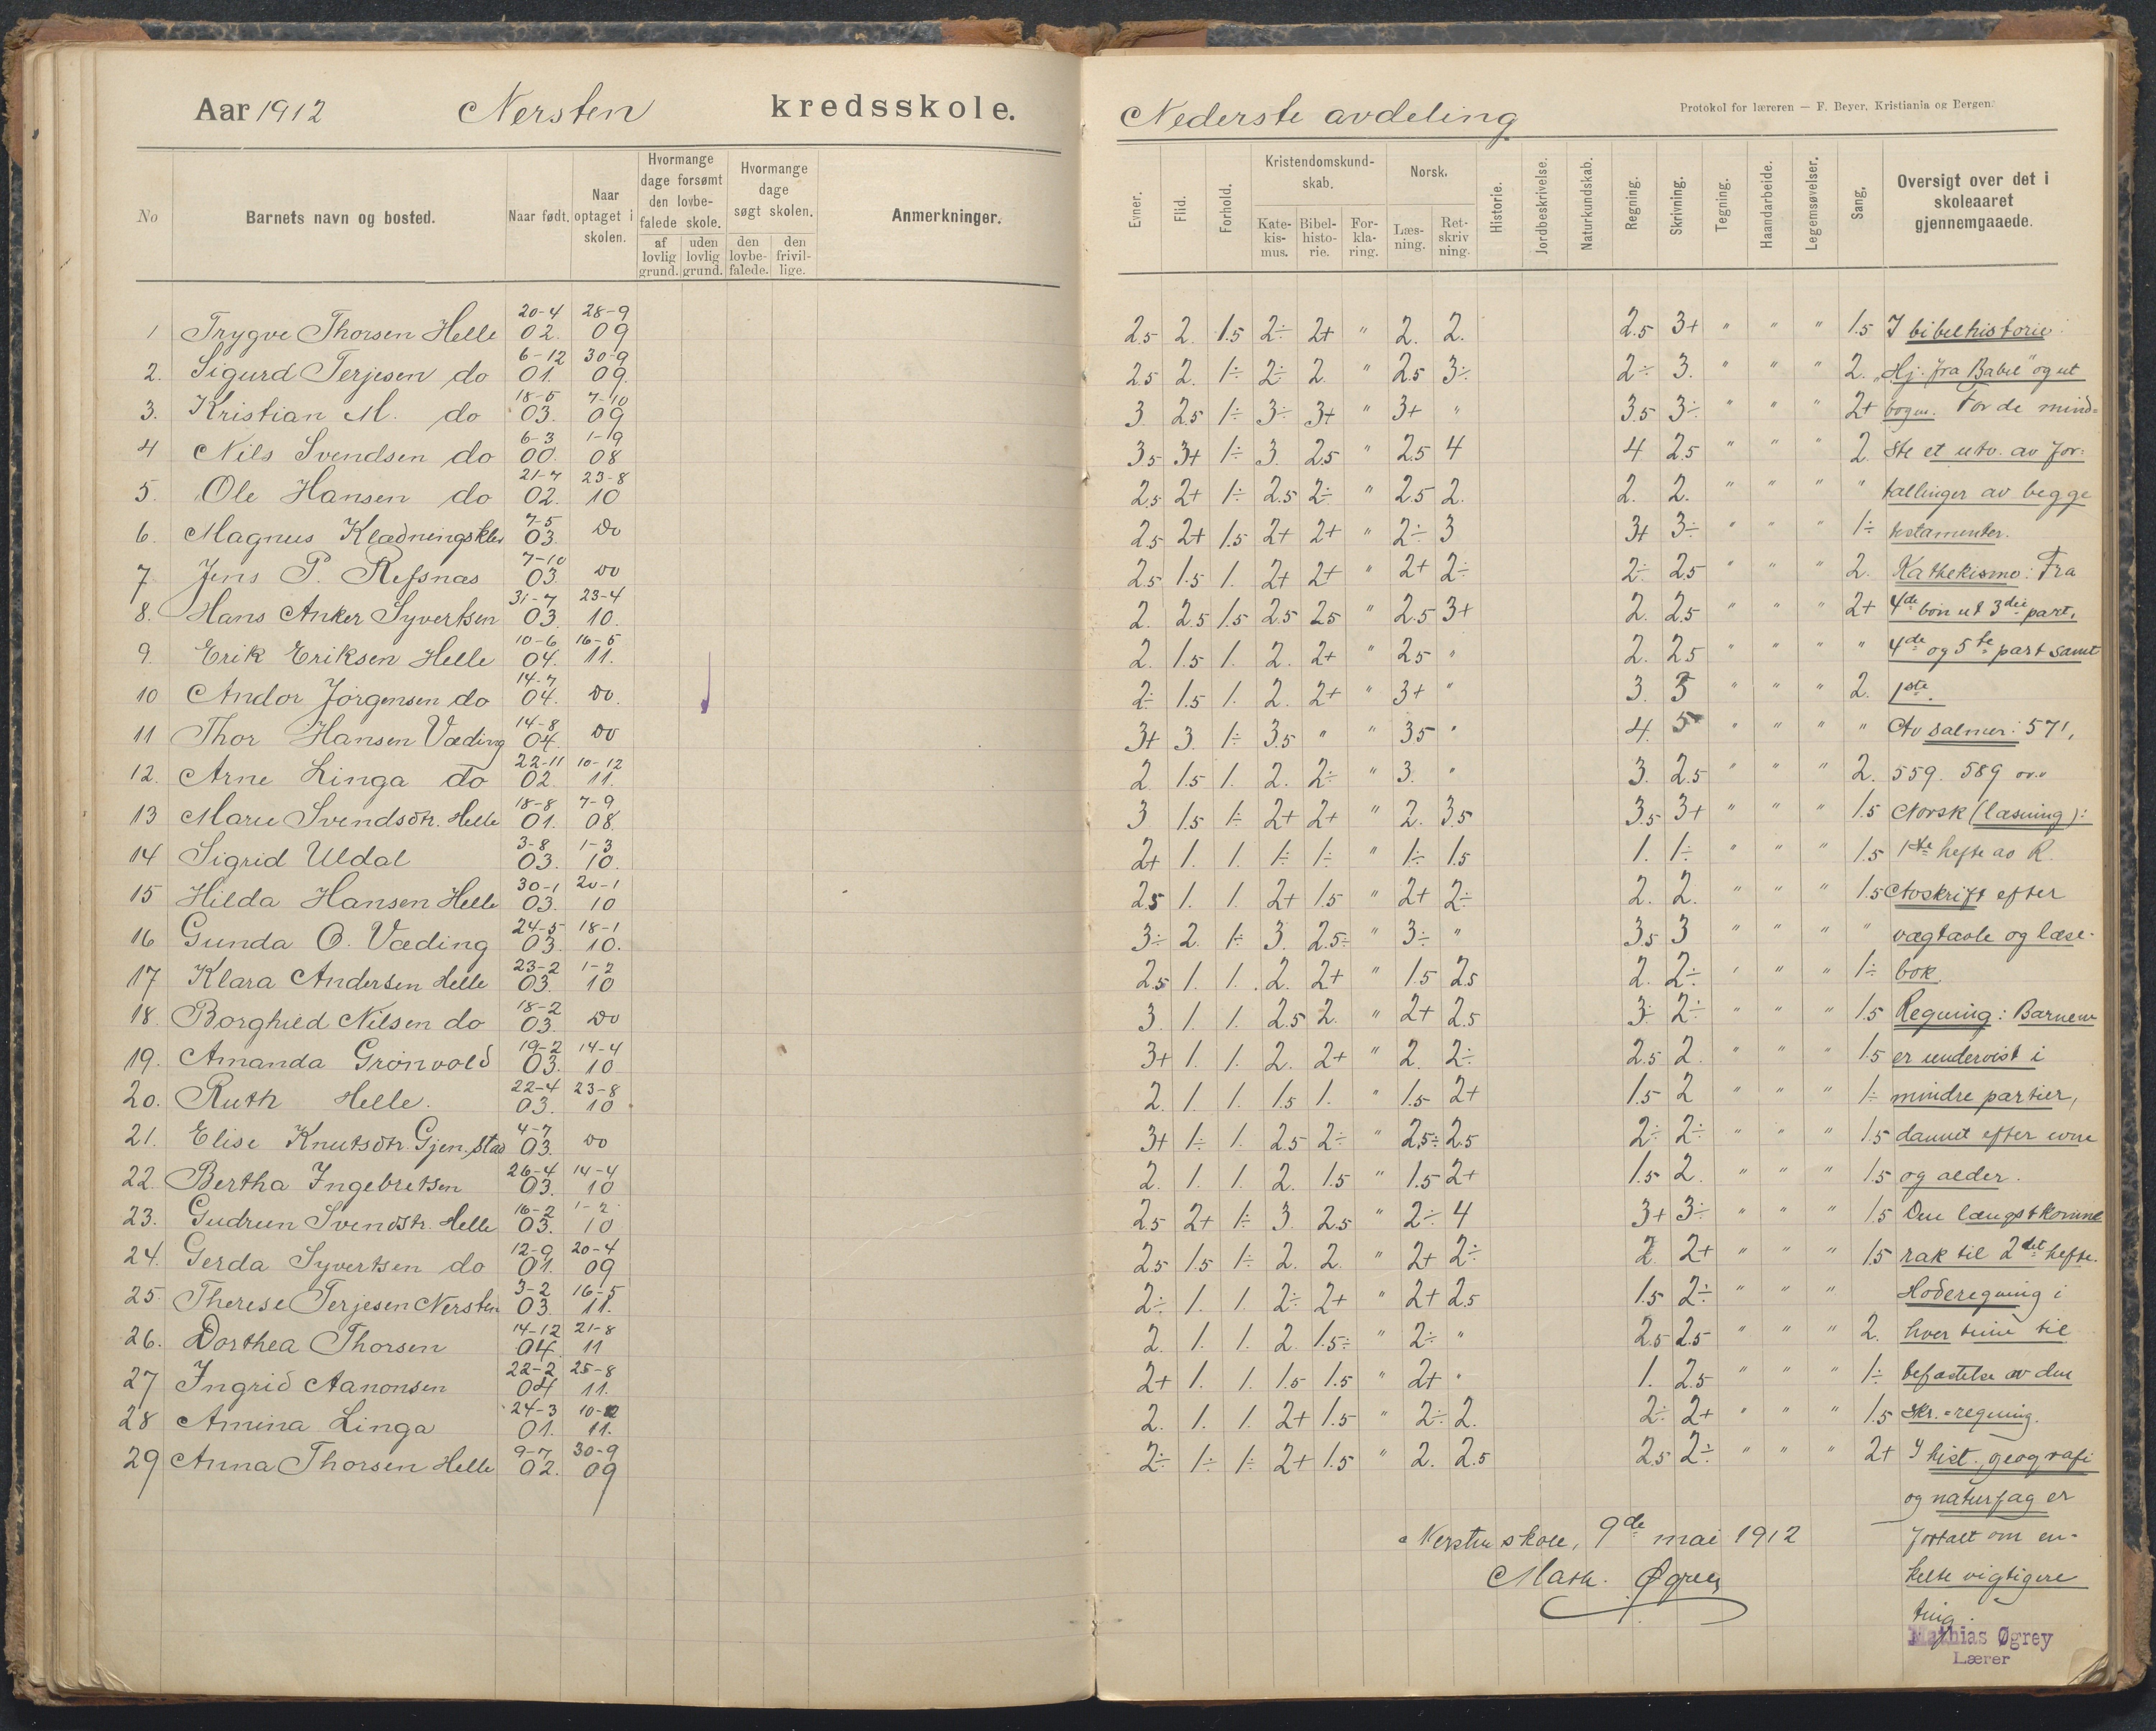 Aar 1912 Nersten kredsskole.
No
Barnets navn og bosted.
Naar født.
Naar optaget i skolen.
Hvormange dage forsømt den lovbefalede skole.
af lovlig grund.
uden lovlig grund.
Hvormange dage søgt skolen.
den lovbefalede.
den frivillige.
Anmerkninger.
1 Trygve Thorsen Helle 20-4 02. 28-9 09
2. Sigurd Terjesen do 6-12 01. 30-9 09.
3. Kristian M. do 18-5 03. 7-10 09
4 Nils Svendsen do 6-3 00. 1-9 08
5. Ole Hansen do 21-7 02. 23-8 10
6. Magnus Klædningsklev 7-5 03. Do
7 Jens P. Refsnæs 7-10 03. Do
8. Hans Anker Syvertsen 31-7 03. 23-4 10.
9. Erik Eriksen Helle 10-6 04. 16-5 11.
10 Andor Jørgensen do 14-7 04. Do.
11 Thor Hansen Væding 14-8 04. Do
12. Arne Linga do 22-11 02. 10-12 11.
13 Marie Svendsdtr. Helle 18-8 01. 7-9 08.
14 Sigrid Uldal 3-8 03. 1-3 10.
15 Hilda Hansen Helle 30-1 03. 20-1 10
16 Gunda O. Væding 24-5 03. 18-1 10.
17 Klara Andersen Helle 23-2 03. 1-2 10
18. Borghild Nilsen do 18-2 03. Do
19. Amanda Grönvold 19-2 03. 14-4 10
20. Ruth Helle. 22-4 03. 23-8 10
21. Elise Knutsdtr. Gjen.stad 4-7 03. Do
22. Bertha Ingebretsen 26-4 03. 14-4 10
23. Gudrun Svendstr. Helle 16-2 03. 1-2 10
24. Gerda Syvertsen do 12-9 01. 20-4 09
25 Therese Terjesen Nersten 3-2 03. 16-5 11.
26. Dorthea Thorsen 14-12 04. 21-8 11
27 Ingrid Aanonsen 22-2 04 25-8 11.
28 Amina Linga 24-3 01. 10-12 11.
29 Anna Thorsen Helle 9-7 02. 30-9 09
Nederste avdeling
Protokol for læreren — F. Beyer, Kristiania og Bergen.
Evner.
Flid.
Forhold.
Kristendomskundskab.
Katekismus.
Bibelhistorie.
Forklaring.
Norsk.
Læsning.
Retskrivning.
Historie.
Jordbeskrivelse.
Naturkundskab.
Regning.
Skrivning.
Tegning.
Haandarbeide.
Legemsøvelser.
Sang.
Oversigt over det i skoleaaret gjennemgaaede.
2.5 2. 1.5 2÷ 2+ " 2. 2. 2.5 3+ " " " 1.5 I bibelhistorie:
2.5 2. 1÷ 2÷ 2. " 2.5 3÷ 2÷ 3. " " " 2. „Hj. fra Babel" og ut
3. 2.5 1÷ 3÷ 3+ " 3+ " 3.5 3÷ " " " 2+ bogen. For de mind=
3.5 3+ 1÷ 3. 2.5 " 2.5 4 4 2.5 " " " 2. ste et utv. av for-
2.5 2+ 1÷ 2.5 2÷ " 2.5 2. 2. 2. " " " " tællinger av begge
2.5 2+ 1.5 2+ 2+ " 2÷ 3 3+ 3÷ " " " 1÷ testamenter.
2.5 1.5 1. 2+ 2+ " 2+ 2÷ 2÷ 2.5 " " " 2. Kathekismo: Fra
2. 2.5 1.5 2.5 2.5 " 2.5 3+ 2. 2.5 " " " 2+ 4de bön ut 3die part,
2. 1.5 1. 2. 2+ " 2.5 " 2. 2.5 " " " " 4de og 5te part samt
2÷ 1.5 1. 2. 2+ " 3+ " 3. 3 " " " 2. 1ste.
3+ 3. 1÷ 3.5 " " 3.5 " 4. 5 " " " " Av salmer: 571,
2 1.5 1. 2. 2÷ " 3. " 3. 2.5 " " " 2. 559. 589 o.v.
3 1.5 1÷ 2+ 2+ " 2. 3.5 3.5 3+ " " " 1.5 Norsk (læsning):
2+ 1. 1. 1÷ 1÷ " 1÷ 1.5 1. 1÷ " " " 1.5 1ste hefte av R.
2.5 1. 1. 2+ 1.5 " 2+ 2÷ 2. 2. " " " 1.5 Avskrift efter
3÷ 2. 1÷ 3. 2.5÷ " 3÷ " 3.5 3 " " " " vægtavle og læse-
2.5 1. 1. 2. 2+ " 1.5 2.5 2. 2÷ " " " 1÷ bok.
3. 1. 1. 2.5 2. " 2+ 2.5 3÷ 2÷ " " " 1.5 Regning: Barnene
3+ 1. 1. 2. 2+ " 2. 2÷ 2.5 2. " " " 1.5 er undervist i
2. 1. 1. 1.5 1. " 1.5 2+ 1.5 2 " " " 1÷ mindre partier,
3+ 1÷ 1. 2.5 2÷ " 2.5÷ 2.5 2÷ 2÷ " " " 1.5 dannet efter evne
2. 1. 1. 2. 1.5 " 1.5 2+ 1.5 2. " " " 1.5 og alder.
2.5 2+ 1÷ 3. 2.5 " 2÷ 4 3+ 3÷ " " " 1.5 Den længstkomne
2.5 1.5 1÷ 2. 2. " 2+ 2÷ 2. 2+ " " " 1.5 rak til 2det hefte.
2÷ 1. 1. 2÷ 2+ " 2+ 2.5 1.5 2÷ " " " Hoderegning i
2. 1. 1. 2. 1.5÷ " 2÷ " 2.5 2.5 " " " 2. hver time til
2+ 1. 1. 1.5 1.5 " 2+ " 1. 2.5 " " " 1÷ befæstelse av den
2. 1. 1. 2+ 1.5 " 2÷ 2. 2÷ 2+ " " " 1.5 skr.=regning.
2÷ 1÷ 1÷ 2+ 1.5 " 2. 2.5 2.5 2÷ " " " 2+ I hist., geografi
og naturfag er
fortalt om en-
kelte vigtigere
ting.
Nersten skole, 9de mai 1912
Math. Øgrey
Mathias Øgrey
Lærer